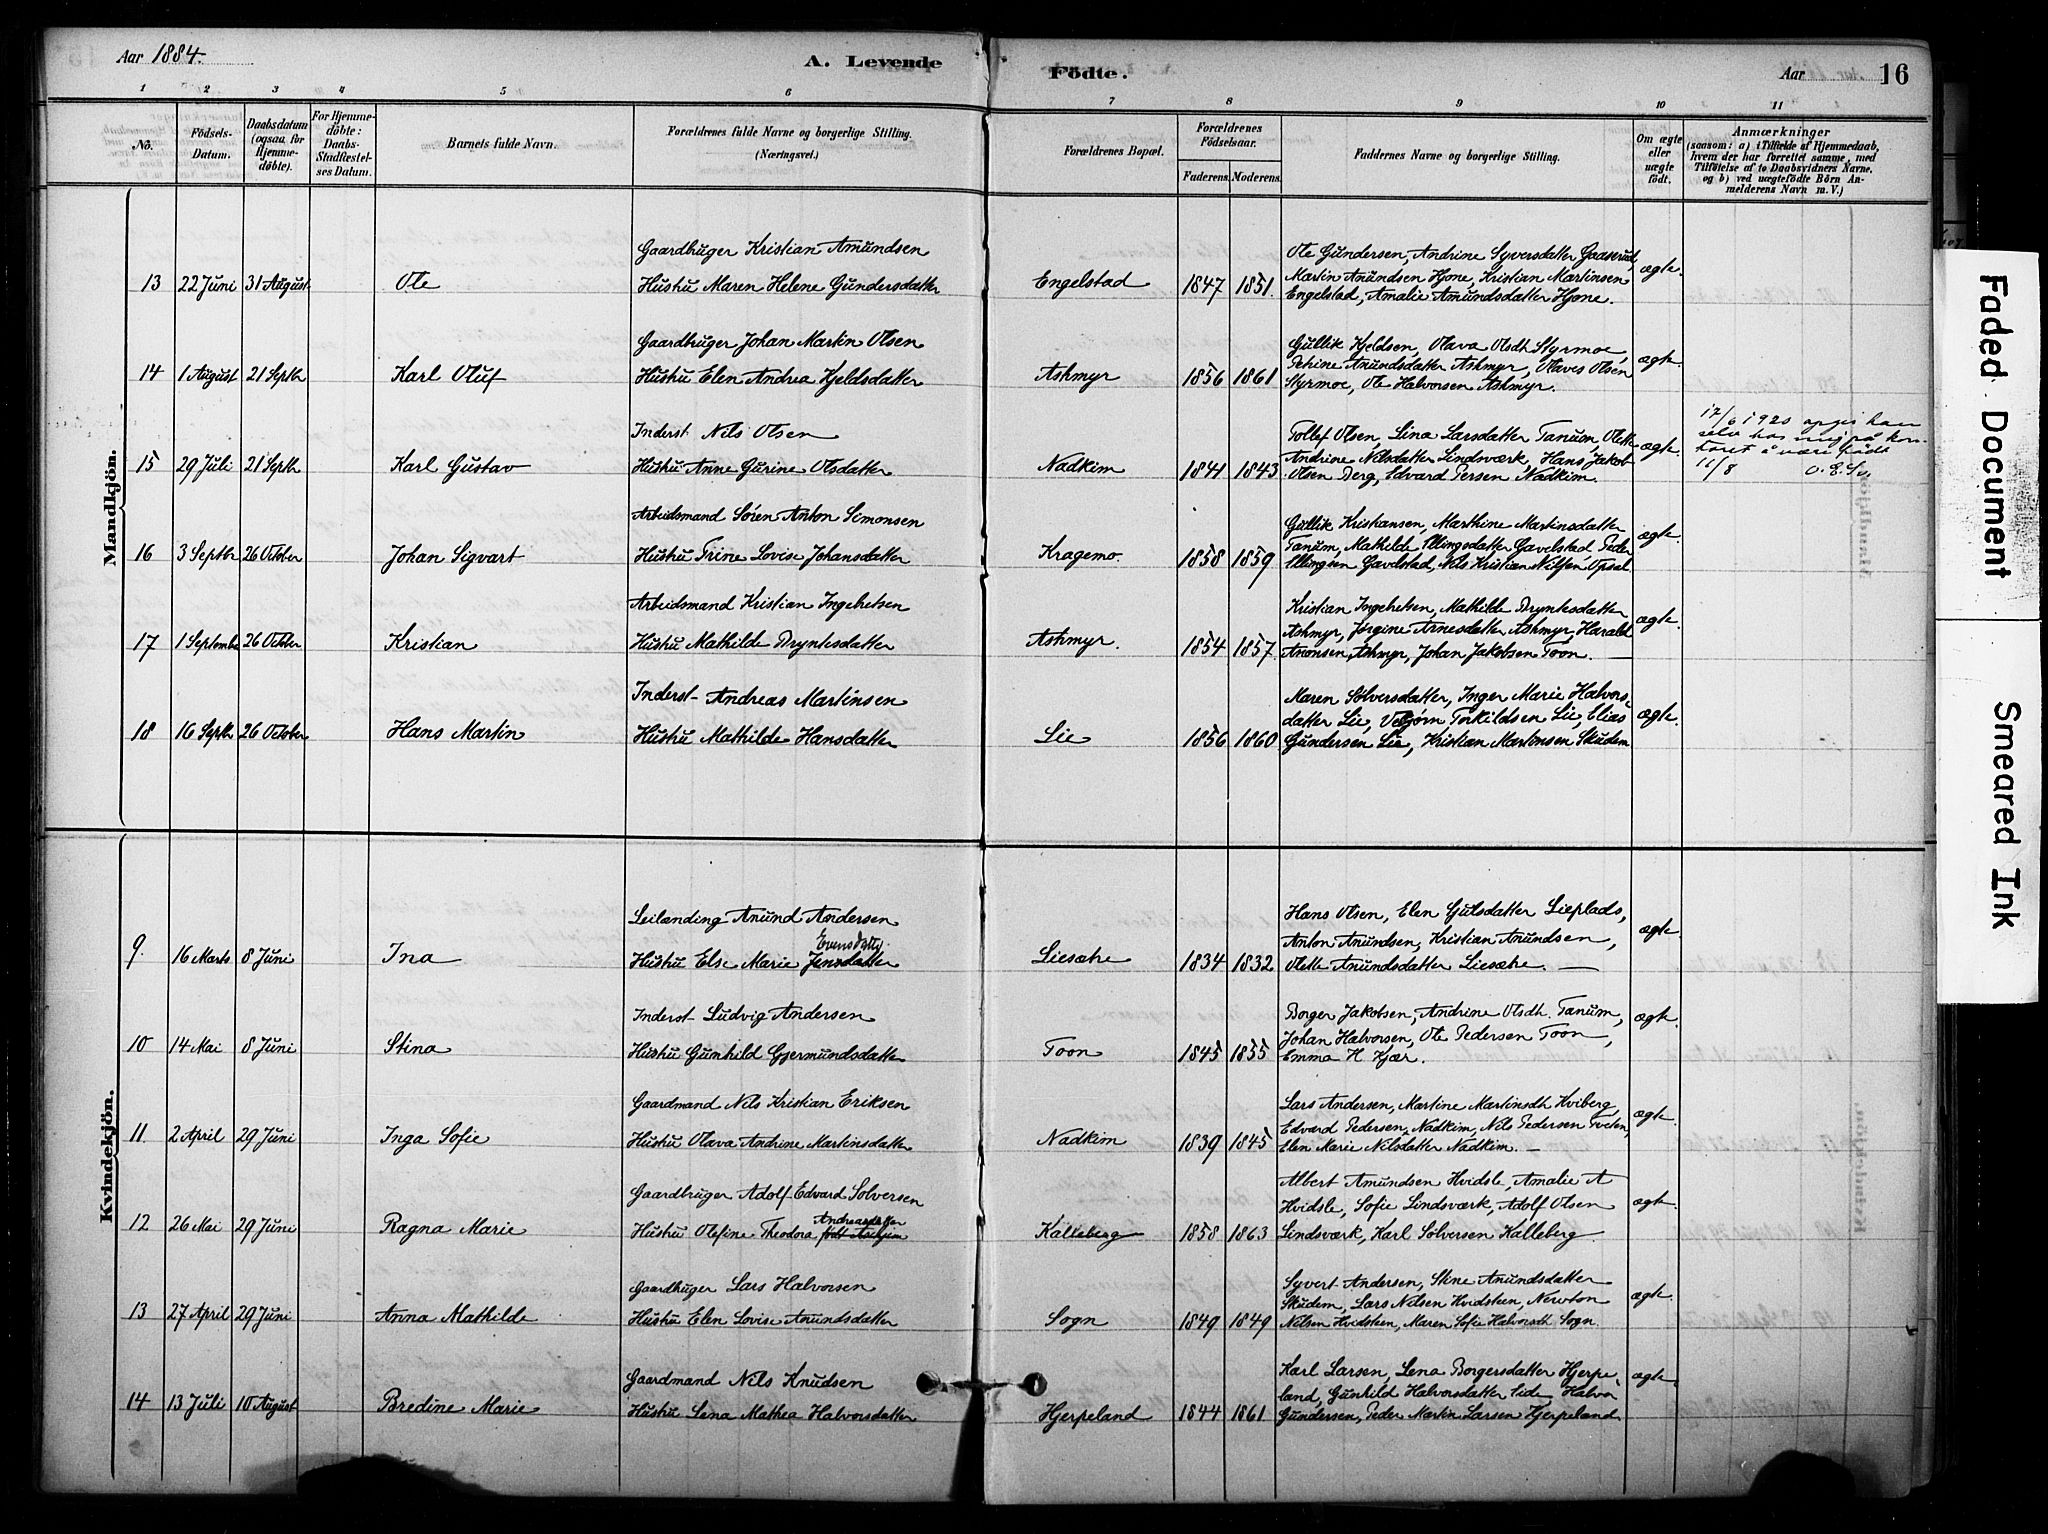 Aar 1884. A. Levende Födte. Aar 16
1 2 3 4 5 6 7 8 9 10 11
No. Födsels-Datum. Daabsdatum (ogsaa for Hjemmedöbte). For Hjemmedöbte: Daabs-Stadfæstelses Datum. Barnets fulde Navn. Forældrenes fulde Navne og borgerlige Stilling. (Næringsvei.) Forældrenes Bopæl. Forældrenes Födselsaar. Faderens. Moderens. Faddernes Navne og borgerlige Stilling. Om ægte eller uægte födt. Anmærkninger (saasom: a) i Tilfælde af Hjemmedaab, hvem der har forrettet samme, med Tilföielse af to Daabsvidners Navne, og b) ved uægtefödte Börn Anmelderens Navn m. V.)
Mandkjön.
Gaardbruger Kristian Amundsen Ole Gundersen, Andrine Syversdatter Gaaserud,
13 22 Juni 31 August Ole Hustru Maren Helene Gundersdatter Engelstad 1847 1851. Martin Anundsen Hjone, Kristian Martinsen ægte.
Engelstad, Amalie Amundsdatter Hjone.
Gaardbruger Johan Martin Olsen Gullik Kjeldsen, Olava Olsdt Styrmoe,
14 1 August 21 Septbr Karl Oluf Hustru Elen Andrea Kjeldsdatter Askmyr 1856 1861 Petrine Anundsdatter Askmyr, Olaves Olsen ægte.
Styrmoe, Ole Halvorsen Askmyr.
Inderst Nils Olsen Tollef Olsen, Lina Larsdatter Tanum, Olette
15 29 Juli 21 Septbr Karl Gustav Hustru Anne Gurine Olsdatter Nadkim 1841 1843 Andrine Nilsdatter Lindsværk, Hans Jakob ægte.
Olsen Berg, Edvard Persen Nadkim.
17/6 1920 opgis han
selv hos mig på kon-
toret å være född
11/8
Arbeidsmand Søren Anton Simonsen Gullik Kristiansen, Marthine Martinsdatter
16 3 Septbr 26 October Johan Sigvart Hustru Trine Lovise Johansdatter Kragemo. 1858 1859 Tanum, Mathilde Ellingsdatter Gavelstad, Peder ægte.
Ellingsen Gavelstad, Nils Kristian Nilsen Opsal.
Arbeidsmand Kristian Ingebretsen Kristian Ingebretsen, Mathilde Bryntesdatter
17 1 Septembr 26 October Kristian Hustru Mathilde Bryntesdatter Askmyr. 1854 1857. Askmyr, Jørgine Arnesdatter Askmyr, Harald ægte.
Anonsen, Askmyr, Johan Jakobsen Toon.
Inderst Andreas Martinsen Maren Sølversdatter, Inger Marie Halvors-
18 16 Septbr 26 October Hans Martin Hustru Mathilde Hansdatter Lie 1856 1860 datter Lie, Vebjørn Torkildsen Lie, Elias ægte.
Gundersen Lie, Kristian Martinsen Skudem
Kvindekjön.
Leilænding Anund Andersen Hans Olsen, Elen Gulsdatter Lieplads,
Evensdatter
9. 16 Marts 8 Juni Ina Hustru Else Marie Jensdatter Liesæhre 1834 1832 Anton Anundsen, Kristian Anundsen, ægte.
Olette Anundsdatter Liesæhre.
Inderst Ludvig Andersen Borger Jakobsen, Andrine Olsdt. Tanum,
10 14 Mai 8 Juni Stina Hustru Gunhild Gjermundsdatter Toon 1845 1855 Johan Halvorsen, Ole Pedersen Toon, ægte.
Emma H Kjær.
Gaardmand Nils Kristian Eriksen Lars Andersen, Martine Martinsdt Kviberg,
11. 2 April 29 Juni Inga Sofie Hustru Olava Andrine Martinsdatter Nadkim 1839 1845 Edvard Pedersen, Nadkim, Nils Pedersen Tveten, ægte.
Elen Marie Nilsdatter Nadkim.
Gaardbruger Adolf Edvard Sølversen Albert Amundsen Hvidsle, Amalie A
Andreasdatter
12 26 Mai 29 Juni Ragna Marie Hustru Olefine Theodora født Askjem Kalleberg 1858 1863 Hvidsle, Sofie Lindsværk, Adolf Olsen ægte.
Lindsværk, Karl Sølversen Kalleberg.
Gaardbruger Lars Halvorsen Syvert Andersen, Stine Anundsdatter
13 27 April 29 Juni Anna Mathilde Hustru Elen Lovise Anundsdatter Sogn 1849 1849 Skudem, Lars Nilsen Hvidsteen, Newton ægte.
Nilsen Hvidsteen, Maren Sofie Halvorsdt Sogn.
Gaardmand Nils Knudsen Karl Larsen, Lena Borgersdatter Hjerpe-
14 13 Juli 10 August Bredine Marie Hustru Lena Mathea Halvorsdatter Hjerpeland 1844 1861 land, Gunhild Halvorsdatter Lide, Halvor ægte.
Gundersen, Peder Martin Larsen Hjerpeland.
Faded Document Smeared Ink